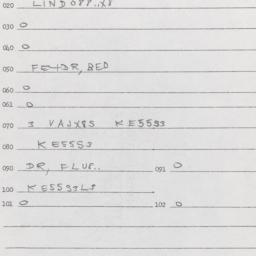 020 LINDO88..X8
030 O
040 O
050 FE+DR, BED
060 O
061 O
070 3 VAJX8S KE55S3
080 KE55S3
090 DR, FLUF.. 091 O
100 KE55S3LS
101 O 102 O